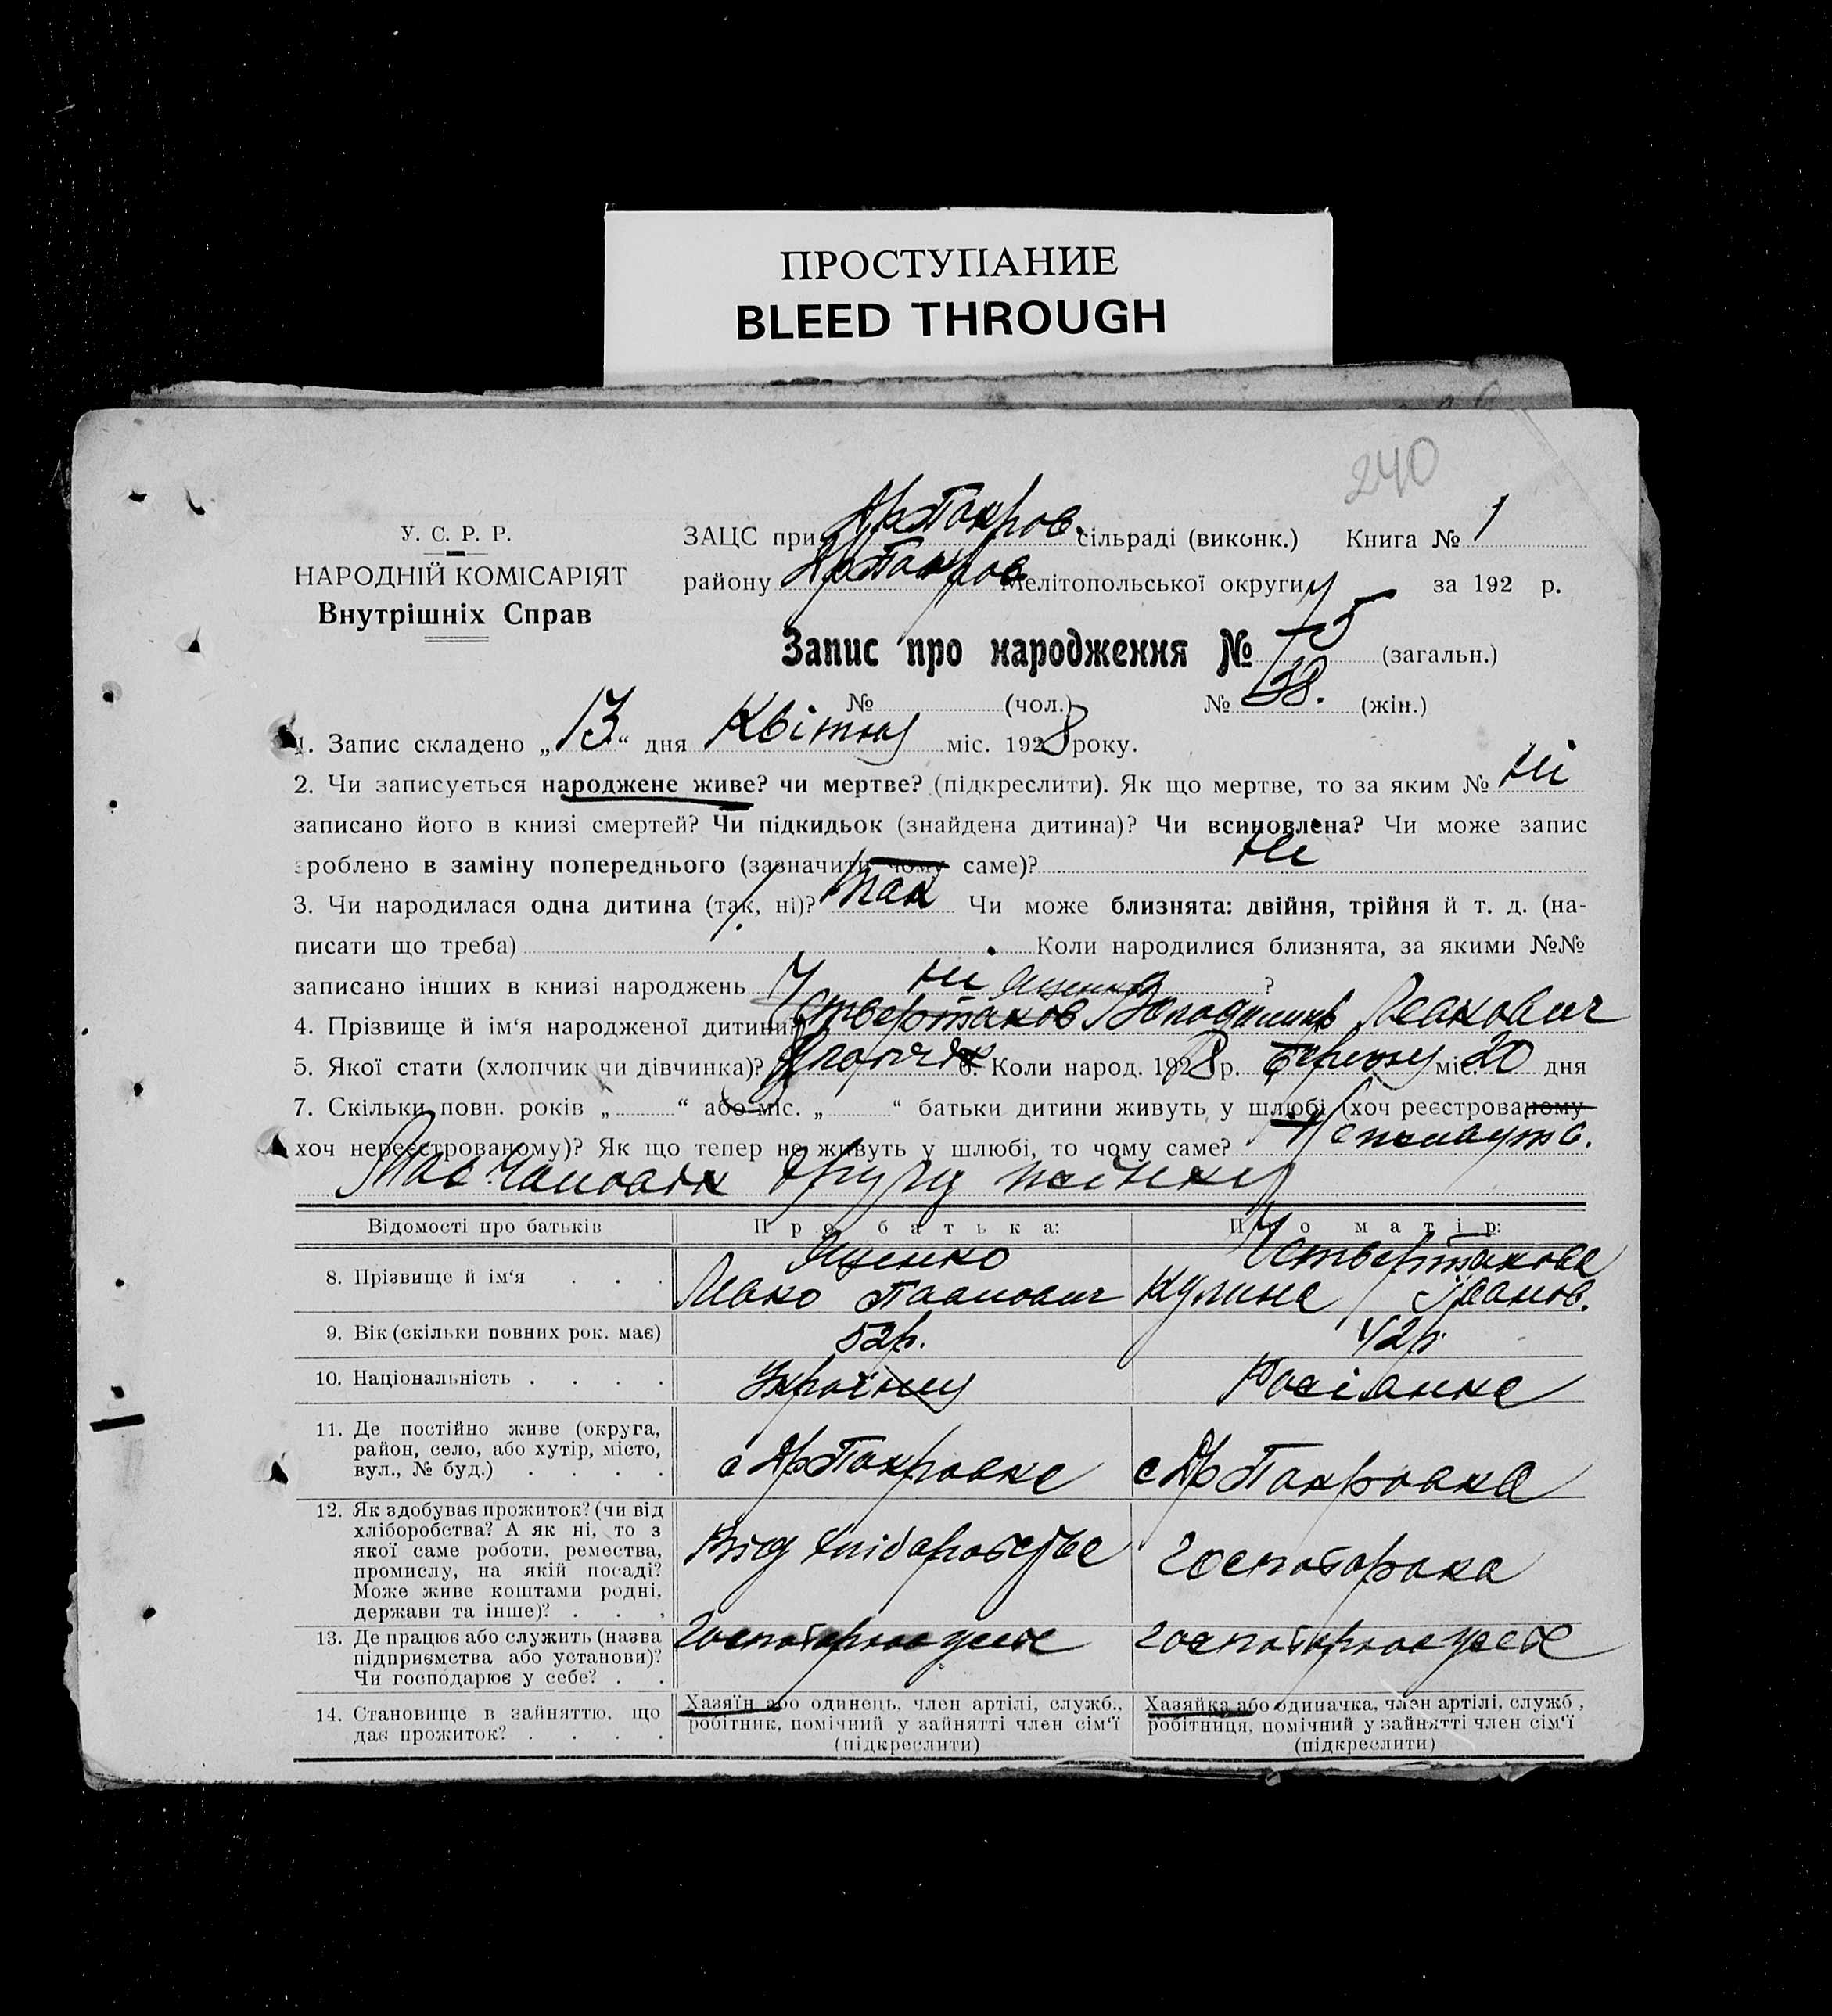 ПРОСТУПАНИЕ
BLEED THROUGH
240
У. С. Р. Р.
НАРОДНІЙ КОМІСАРІЯТ
Внутрішніх Справ
ЗАЦС при Др Покров. сільраді (виконк.) Книга № 1
району Др Покров Мелітопольської округи за 192 р.
Запис про народження № 75 (загальн.)
№ (чол.) № 38. (жін.)
1. Запис складено „13“ дня Квітня міс. 1928 року.
2. Чи записується народжене живе? чи мертве? (підкреслити). Як що мертве, то за яким № Ні
записано його в книзі смертей? Чи підкидьок (знайдена дитина)? Чи всиновлена? Чи може запис
зроблено в заміну попереднього (зазначити чому саме)? Ні
3. Чи народилася одна дитина (так, ні)? Так Чи може близнята: двійня, трійня й т. д. (на-
писати що треба) Коли народилися близнята, за якими №№
записано інших в книзі народжень Ні ?
Ященко
4. Прізвище й ім‘я народженої дитини Четвертаков Володимир Левкович
5. Якої стати (хлопчик чи дівчинка)? Хлопчик 6. Коли народ. 1928 р. Березня міс. 20 дня
7. Скільки повн. років „ “ або міс. „ “ батьки дитини живуть у шлюбі (хоч реєстрованому
хоч нереєстрованому)? Як що тепер не живуть у шлюбі, то чому саме?
Має чоловік другу жінку
Відомості про батьків Про батька: Про матір:
8. Прізвище й ім‘я . . . Ященко Левко Павлович Четвертакова Кулина Іванов.
9. Вік (скільки повних рок. має) 52р. 42р.
10. Національність . . . . Українец Росіянка
11. Де постійно живе (округа,
район, село, або хутір, місто,
вул., № буд.) . . . .
с Др Покровка с Др Покровка
12. Як здобуває прожиток? (чи від
хліборобства? А як ні, то з
якої саме роботи, ремества,
промислу, на якій посаді?
Може живе коштами родні,
держави та інше)? . . .
Від хліборобства господарка
13. Де працює або служить (назва
підприємства або установи)?
Чи господарює у себе? . .
господарює у себе господарює у себе
14. Становище в зайняттю, що
дає прожиток? . . . .
Хазяїн або одинець, член артілі, служб.,
робітник, помічний у зайнятті член сім‘ї
(підкреслити)
Хазяйка або одиначка, член артілі, служб,
робітниця, помічний у зайнятті член сім‘ї
(підкреслити)